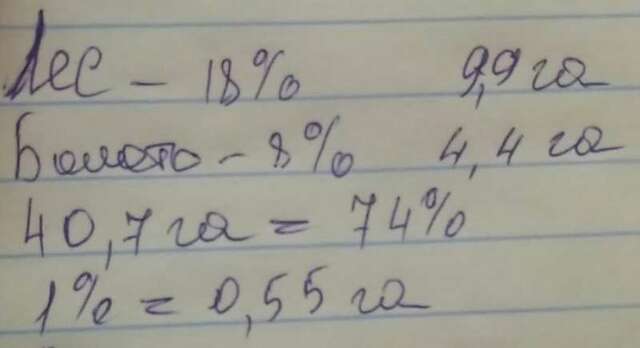 Лес - 18% 9,9 га
Болото - 8% 4,4 га
40,7 га = 74%
1% = 0,55 га